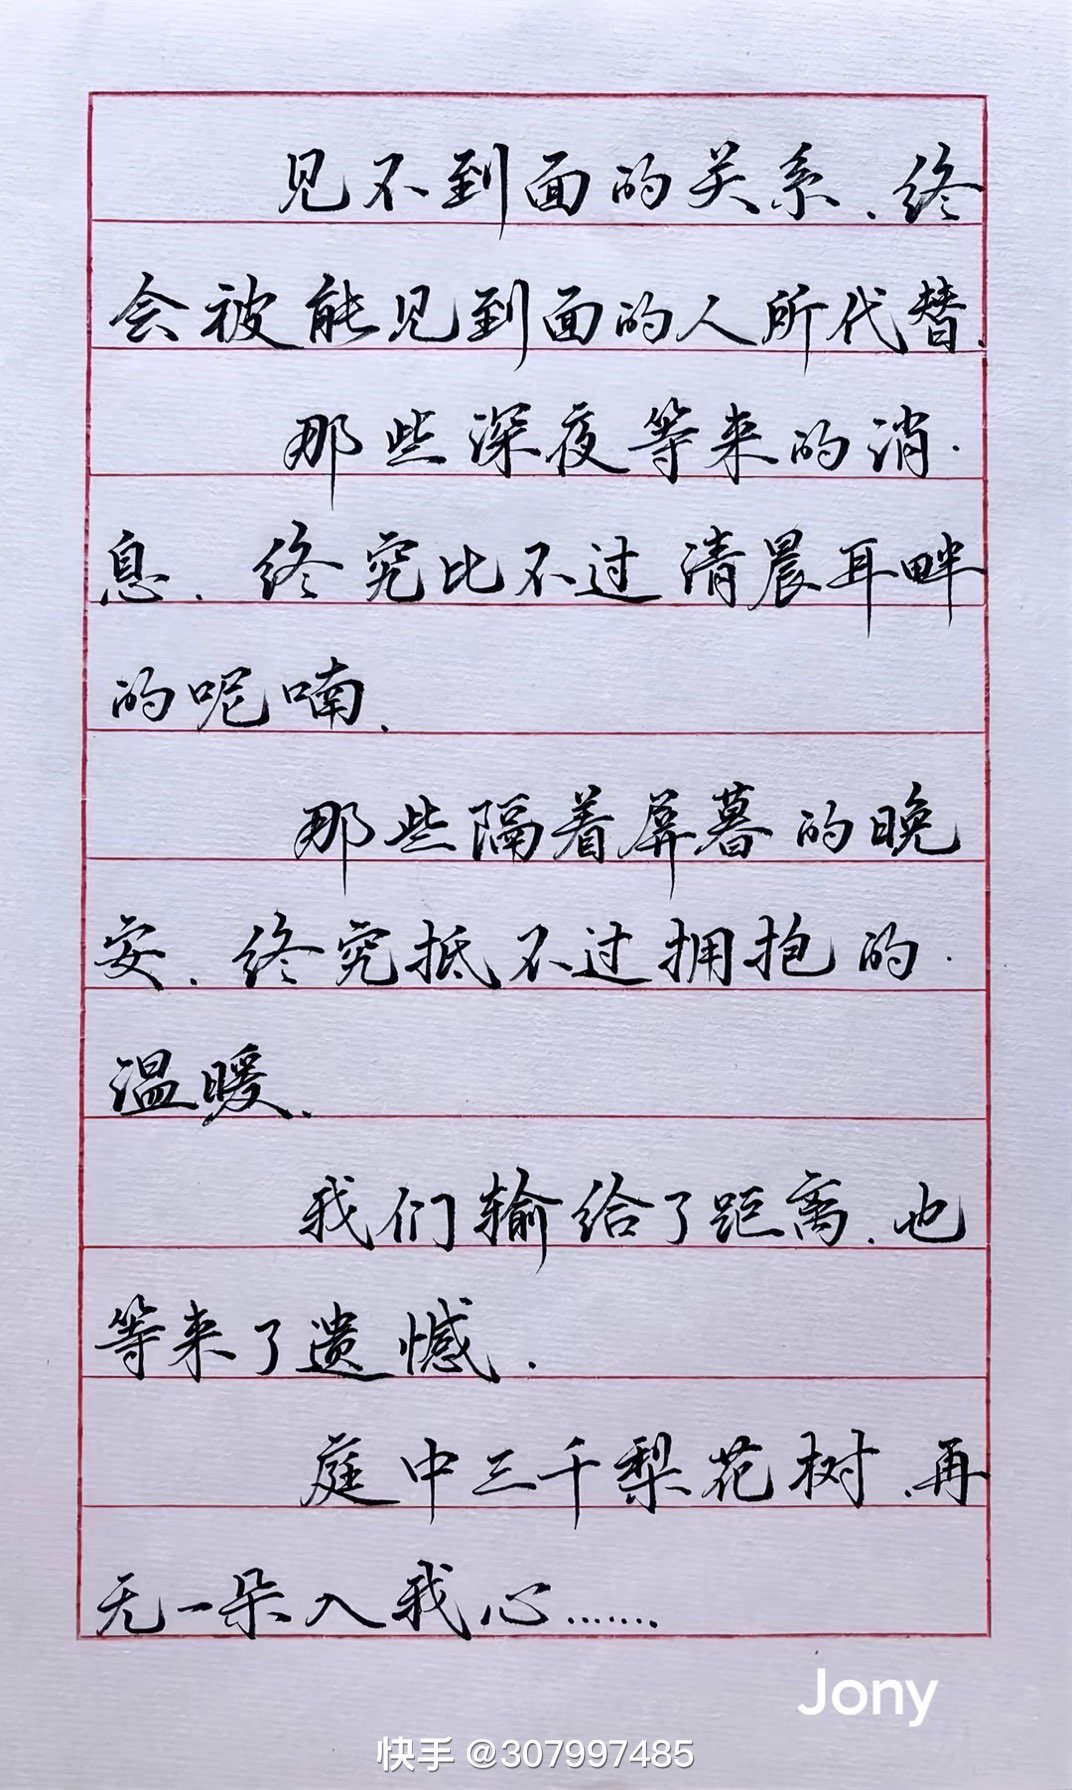 见不到面的关系.终
会被能见到面的人所代替.
那些深夜等来的消.
息.终究比不过清晨耳畔
的呢喃.
那些隔着屏暮的晚
安.终究抵不过拥抱的.
温暖.
我们输给了距离.也
等来了遗憾.
庭中三千梨花树.再
无一朵入我心.......
Jony
快手 @307997485